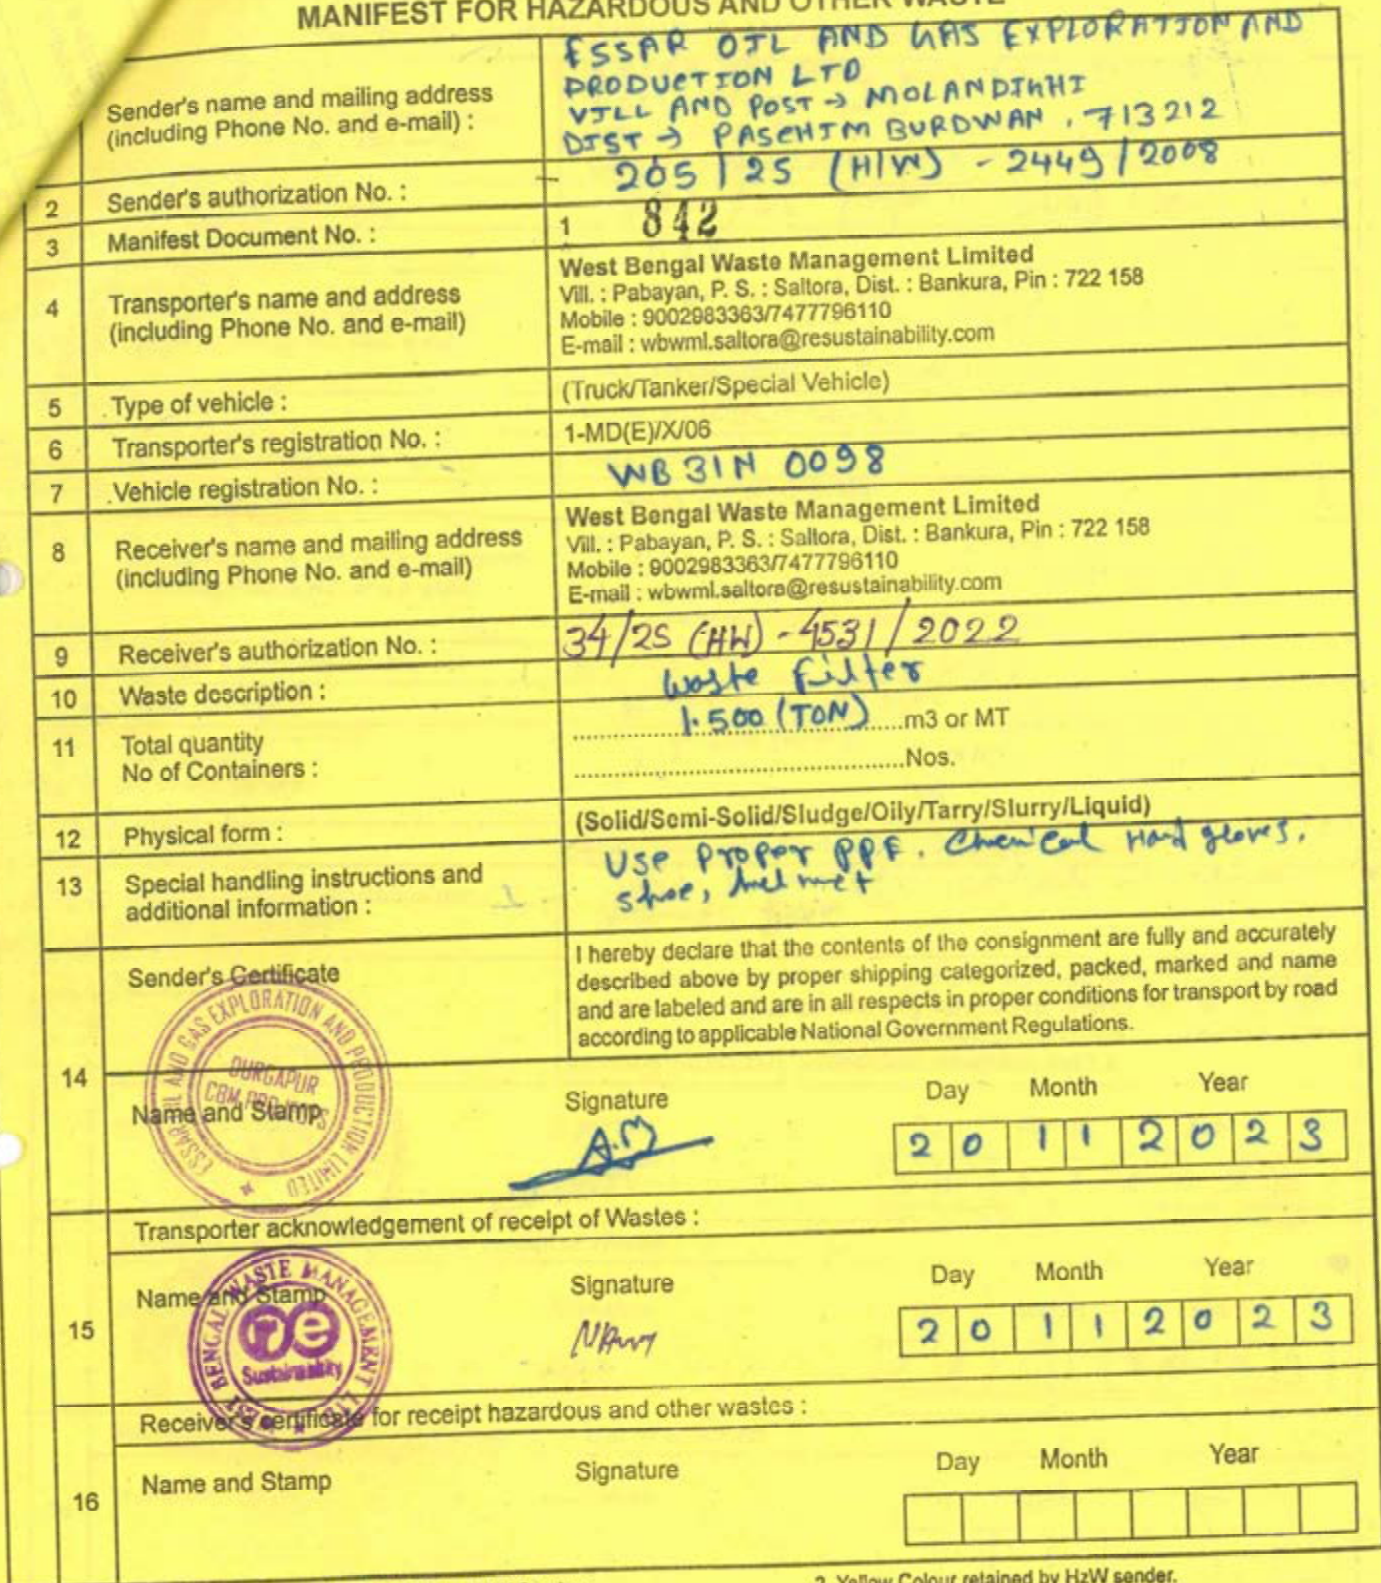 MANIFEST FOR HAZARDOUS AND OTHER WASTE
Sender's name and mailing address
(including Phone No. and e-mail) :
ESSAR OIL AND GAS EXPLORATION AND
PRODUCTION LTD
VILL AND POST → MOLANDIGHI
DIST → PASCHIM BURDWAN . 713212
2 Sender's authorization No. : 205/25 (H/W) - 2449/2008
3 Manifest Document No. : 1 842
4 Transporter's name and address
(including Phone No. and e-mail)
West Bengal Waste Management Limited
Vill. : Pabayan, P. S. : Saltora, Dist. : Bankura, Pin : 722 158
Mobile : 9002983363/7477796110
E-mail : wbwml.saltora@resustainability.com
5 Type of vehicle : (Truck/Tanker/Special Vehicle)
6 Transporter's registration No. : 1-MD(E)/X/06
7 Vehicle registration No. : WB 31N 0098
8 Receiver's name and mailing address
(including Phone No. and e-mail)
West Bengal Waste Management Limited
Vill. : Pabayan, P. S. : Saltora, Dist. : Bankura, Pin : 722 158
Mobile : 9002983363/7477796110
E-mail : wbwml.saltora@resustainability.com
9 Receiver's authorization No. : 34/2S (HW) - 4531/2022
10 Waste description : Waste Filter
11 Total quantity 1.500 (TON) m3 or MT
No of Containers : Nos.
12 Physical form : (Solid/Semi-Solid/Sludge/Oily/Tarry/Slurry/Liquid)
13 Special handling instructions and
additional information :
Use Proper PPE. Chemical Hand gloves.
shoe, helmet
14 Sender's Certificate
I hereby declare that the contents of the consignment are fully and accurately
described above by proper shipping categorized, packed, marked and name
and are labeled and are in all respects in proper conditions for transport by road
according to applicable National Government Regulations.
ESSAR OIL AND GAS EXPLORATION AND PRODUCTION LIMITED
DURGAPUR
CBM PROJECTS
Name and Stamp Signature Day Month Year
A.M
2 0 1 1 2 0 2 3
15 Transporter acknowledgement of receipt of Wastes :
Name and Stamp Signature Day Month Year
WEST BENGAL WASTE MANAGEMENT LTD.
re
Sustainability
2 0 1 1 2 0 2 3
16 Receiver's certificate for receipt hazardous and other wastes :
Name and Stamp Signature Day Month Year
2. Yellow Colour retained by HzW sender.